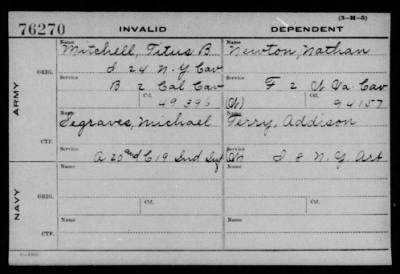 (3-H-5)
76270 INVALID DEPENDENT
Name Name
Mitchell, Titus B. Newton, Nathan
ORIG. I 24 N.Y. Cav
Service Service
B 2 Cal Cav F 2 W Va. Cav
Ctf. Ctf.
49,396 (W) 94157
ARMY
Name Name
Segraves, Michael Terry, Addison
CTF.
Service Service
A 20 and C 19 Ind Inf (W) I 8 N.Y. Art
Name Name
ORIG.
Service Ctf. Service Ctf.
NAVY
Name Name
CTF.
Service Service